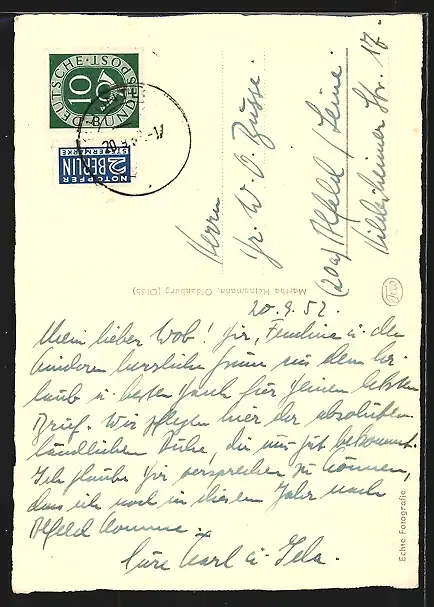 DEUTSCHE · POST · BUNDESPOST
10
NOTOPFER
2 BERLIN
STEUERMARKE
20.9.52.-17
Herrn
Dr. W. O. Busse.
(20a) Alfeld / Leine.
Hildesheimer Str. 17.
Martha Heinemann, Oldenburg (Oldb)
20.9.52.
Mein lieber Wob! Dir, Fendine u. den
Kindern herzliche Grüsse aus dem Ur-
laub u. besten Dank für Deinen letzten
Brief. Wir pflegen hier der absoluten
ländlichen Ruhe, die uns gut bekommt.
Ich glaube Dir versprechen zu können,
dass ich noch in diesem Jahr nach
Alfeld komme.
Eure Karl u. Jela.
Echte Fotografie